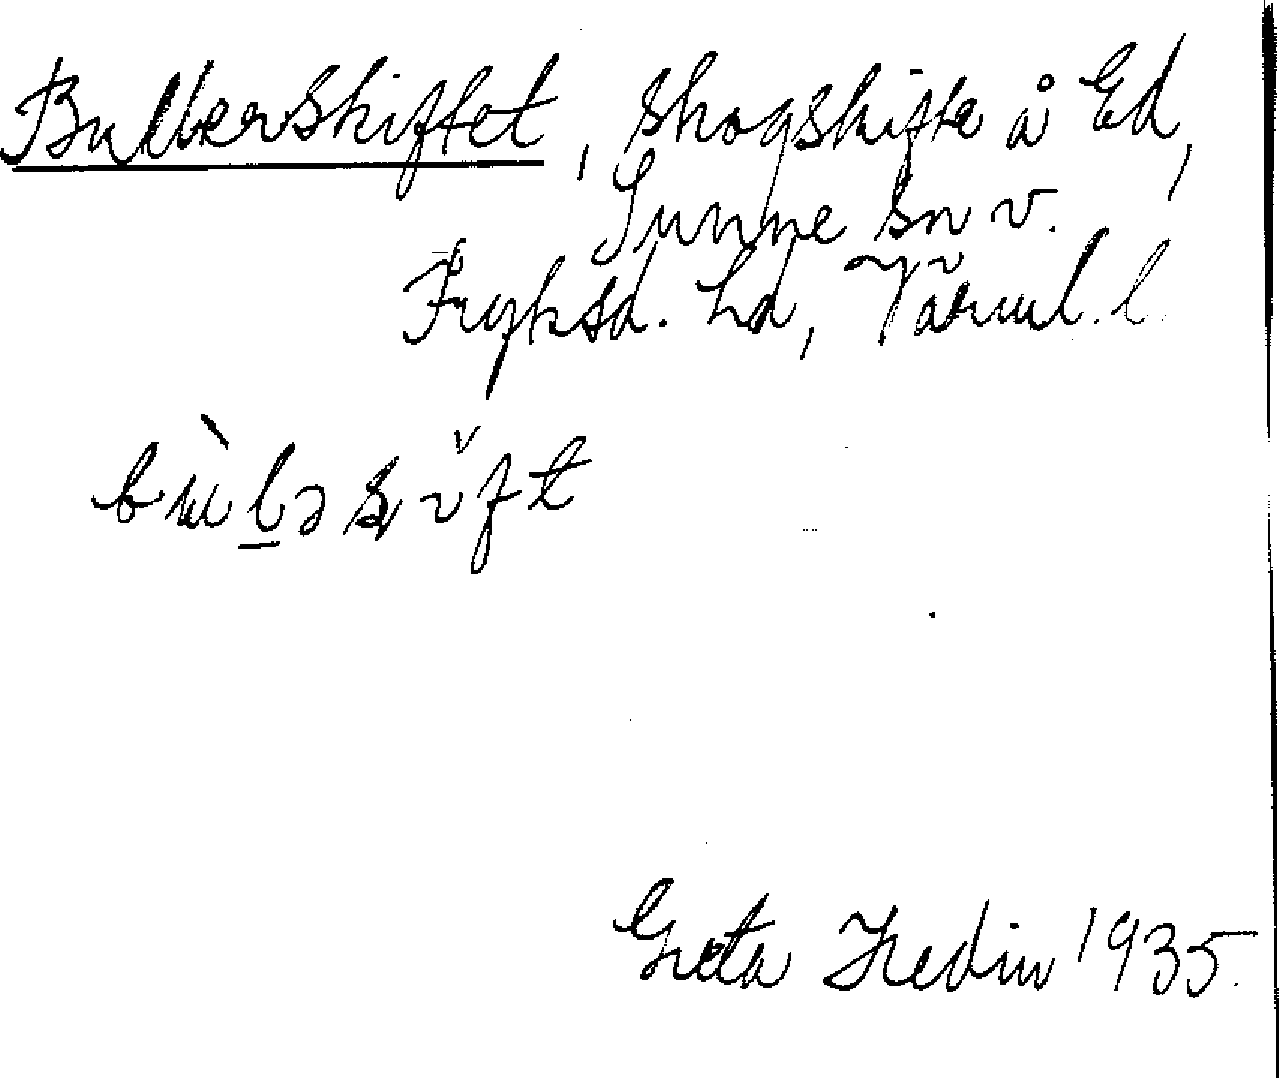 Bullerskiftet, skogskifte å Ed,
Sunne sn v.
Fryksd. hd, Värml. l.
Greta Hedin 1935.